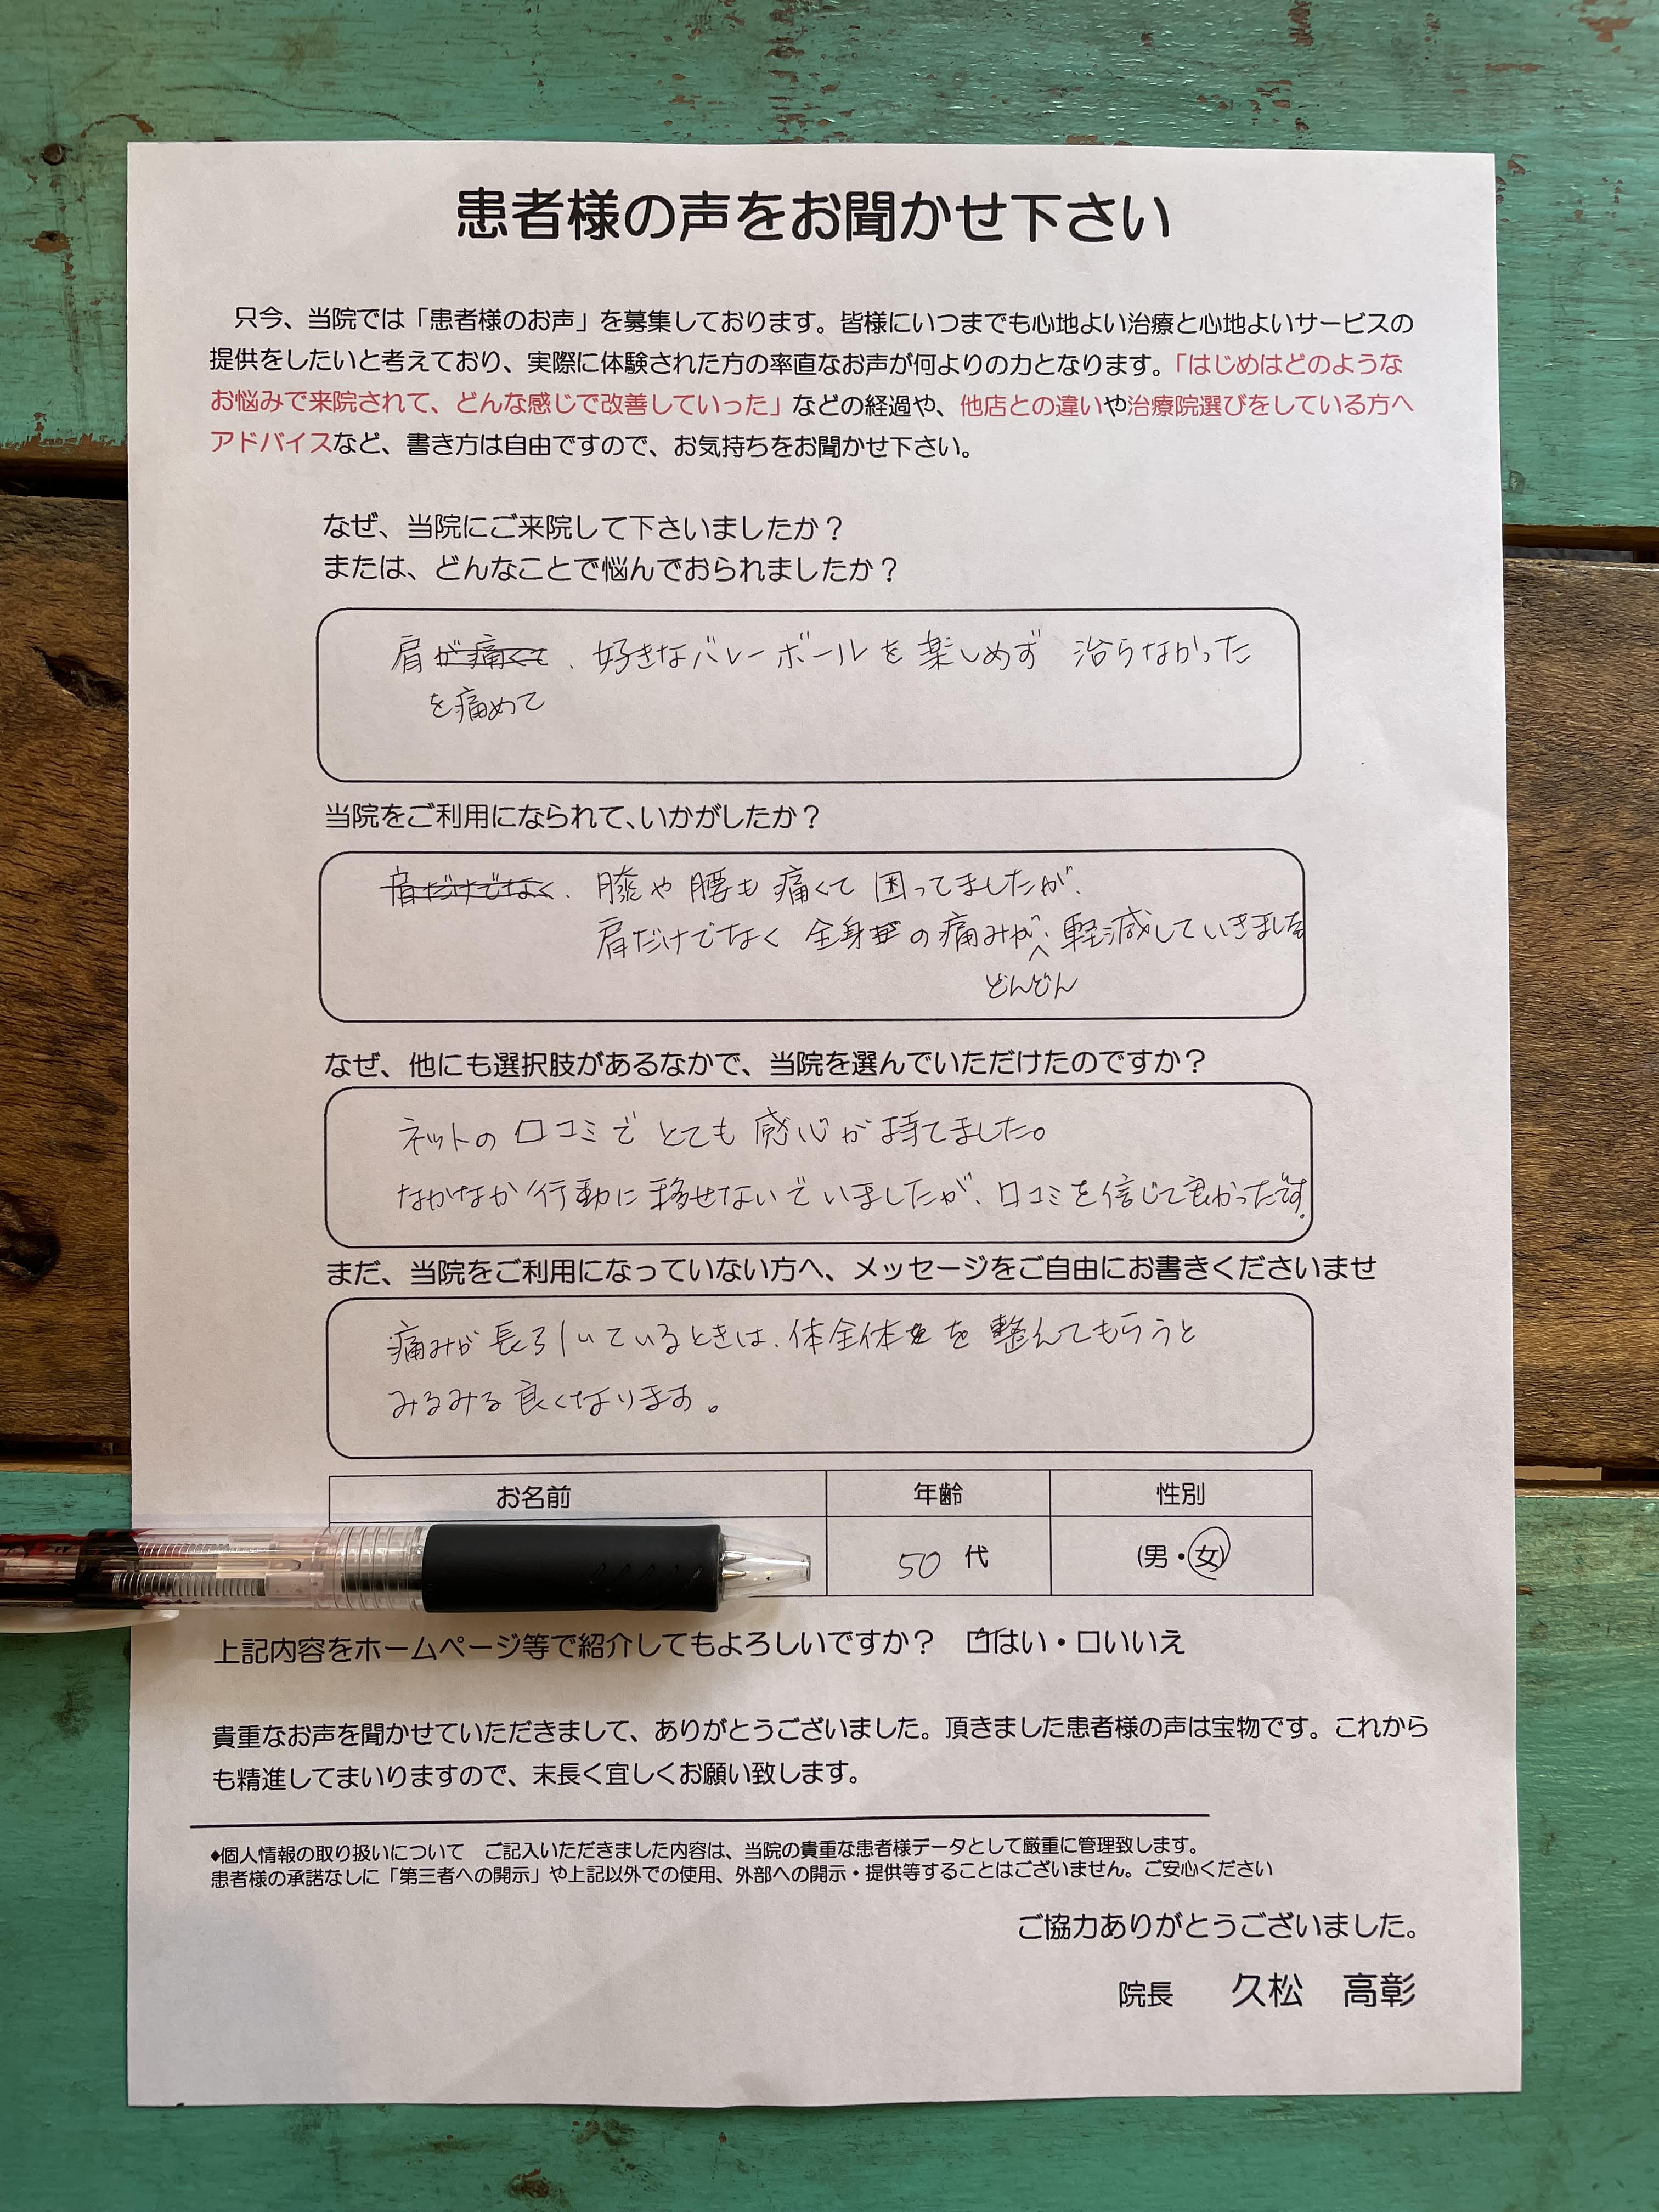 患者様の声をお聞かせ下さい
只今、当院では「患者様のお声」を募集しております。皆様にいつまでも心地よい治療と心地よいサービスの
提供をしたいと考えており、実際に体験された方の率直なお声が何よりの力となります。「はじめはどのような
お悩みで来院されて、どんな感じで改善していった」などの経過や、他店との違いや治療院選びをしている方へ
アドバイスなど、書き方は自由ですので、お気持ちをお聞かせ下さい。
なぜ、当院にご来院して下さいましたか？
または、どんなことで悩んでおられましたか？
肩が痛くて、好きなバレーボールを楽しめず 治らなかった
を痛めて
当院をご利用になられて、いかがしたか？
肩だけでなく、膝や腰も痛くて困ってましたが、
肩だけでなく 全身の痛みが、軽減していきました
どんどん
なぜ、他にも選択肢があるなかで、当院を選んでいただけたのですか？
ネットの口コミでとても感心が持てました。
なかなか行動に移せないでいましたが、口コミを信じて良かったです。
まだ、当院をご利用になっていない方へ、メッセージをご自由にお書きくださいませ
痛みが長引いているときは、体全体を整えてもらうと
みるみる良くなります。
お名前 年齢 性別
50代 (男・女)
上記内容をホームページ等で紹介してもよろしいですか？ ☑はい・□いいえ
貴重なお声を聞かせていただきまして、ありがとうございました。頂きました患者様の声は宝物です。これから
も精進してまいりますので、末長く宜しくお願い致します。
♦個人情報の取り扱いについて ご記入いただきました内容は、当院の貴重な患者様データとして厳重に管理致します。
患者様の承諾なしに「第三者への開示」や上記以外での使用、外部への開示・提供等することはございません。ご安心ください
ご協力ありがとうございました。
院長 久松 高彰